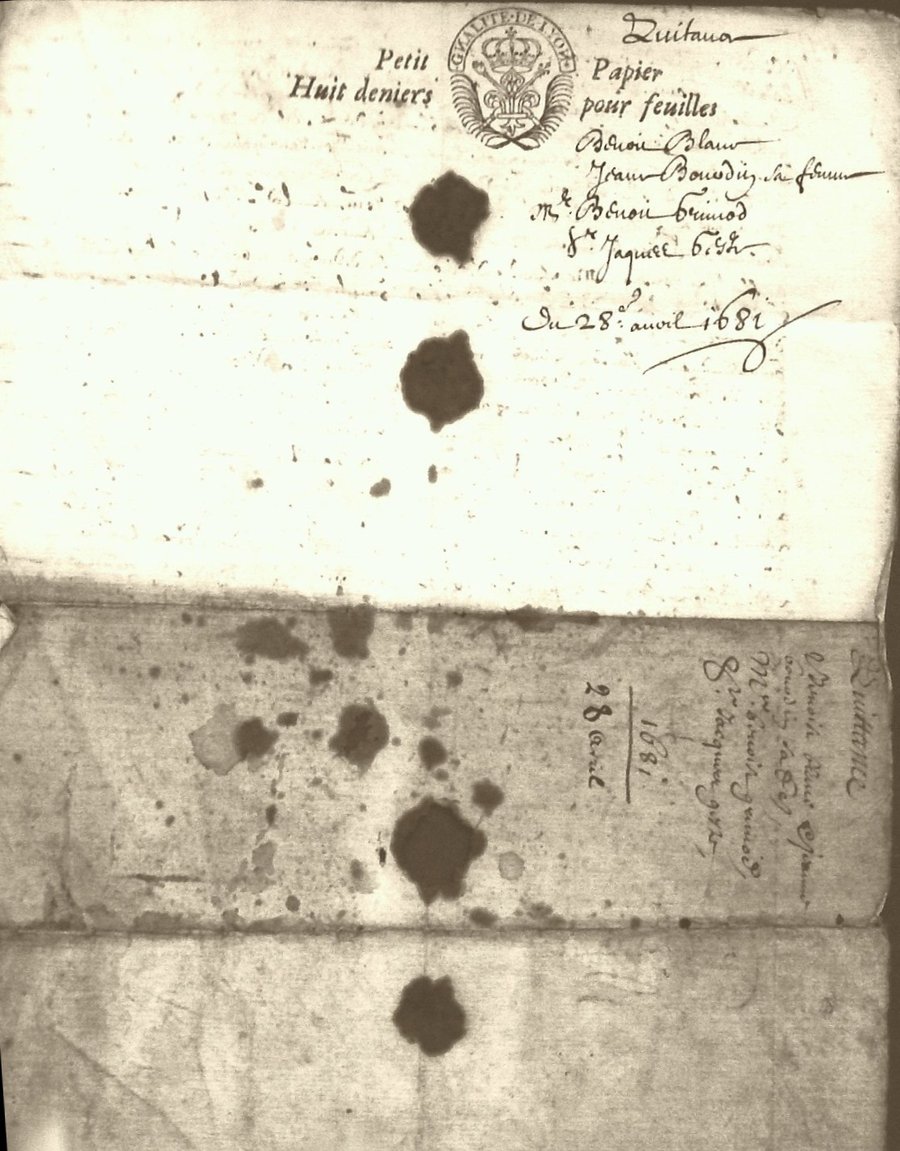 GNALITE·DE·LYON
Petit Papier
Huit deniers pour feuilles
Quitance
Benoit Blanc
Jeane Bourdin sa femme
Mr. Benoit Grimod
Sr. Jaques Giste
Du 28e. auril 1681
Quittance
Benoit Blanc & Jeanne
sa fe
Mre benoit grimod
Sr Jacques giste,
1681
28 avril